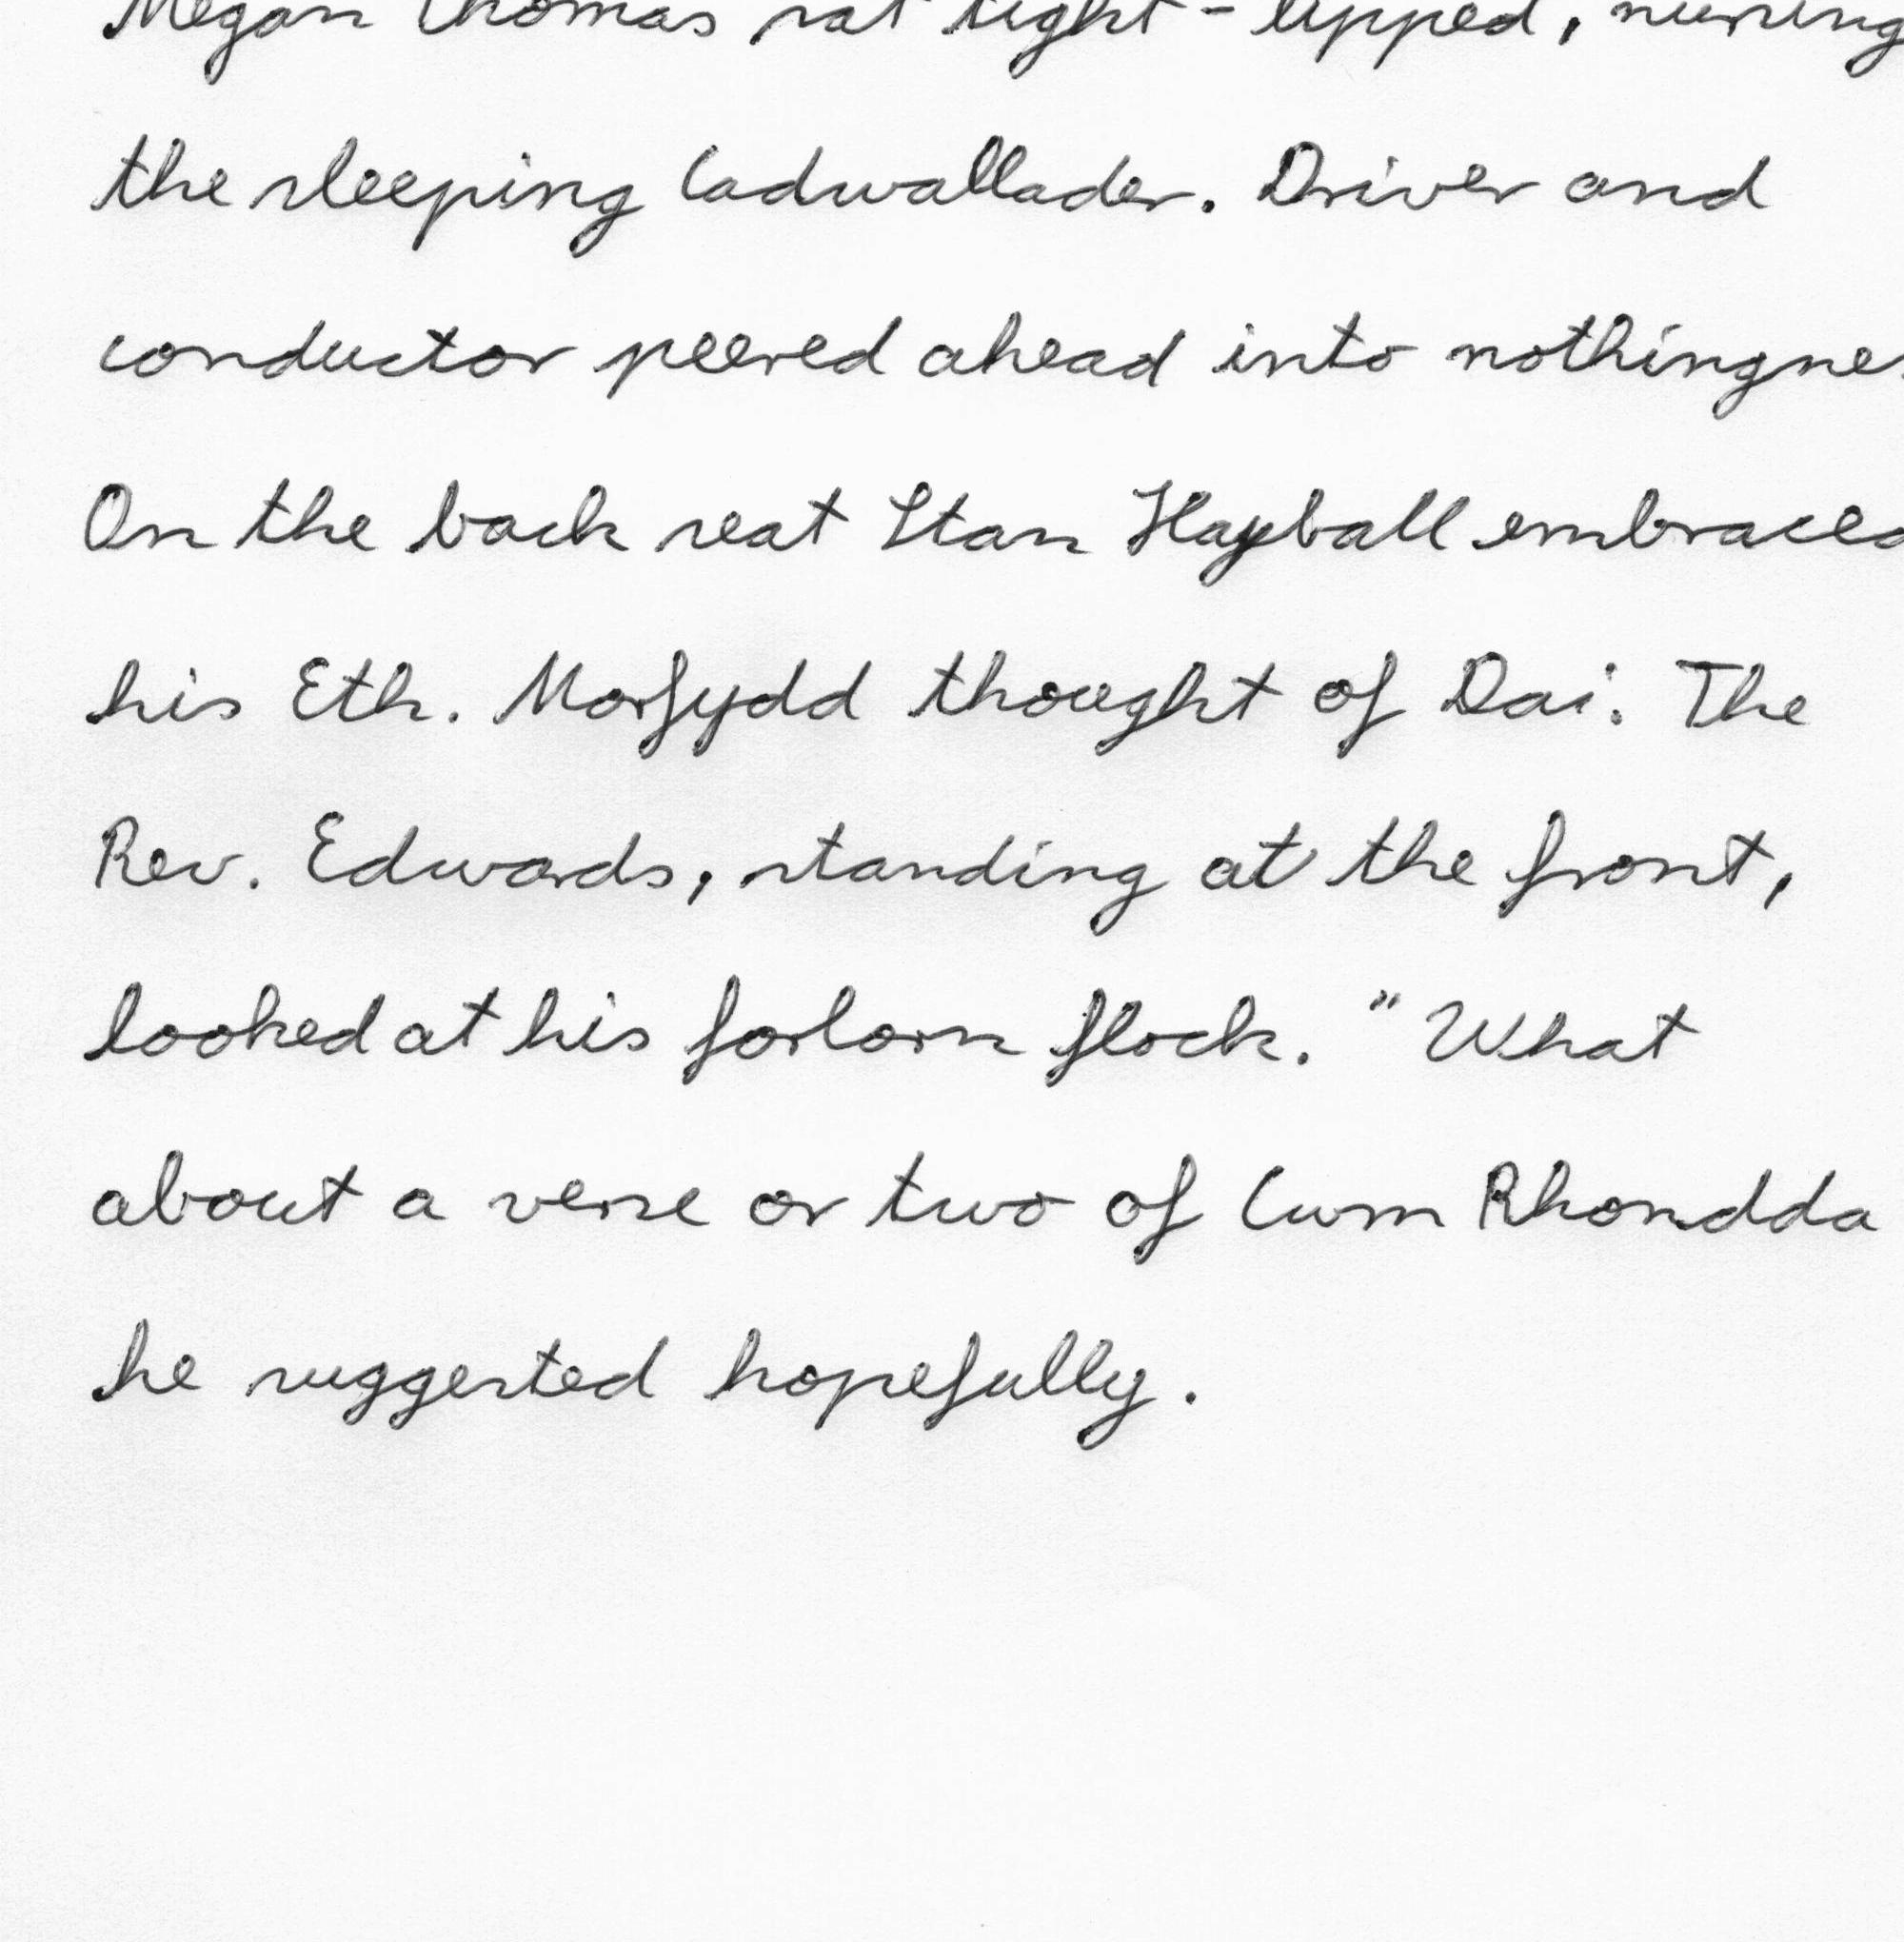 Megan Thomas sat tight-lipped, nursing
the sleeping Cadwallader. Driver and
conductor peered ahead into
On the back seat Stan Hayball embraced
his Eth. Morfydd thought of Dai. The
Rev. Edwards, standing at the front,
looked at his forlorn flock. "What
about a verse or two of Cwm Rhondda
he suggested hopefully.